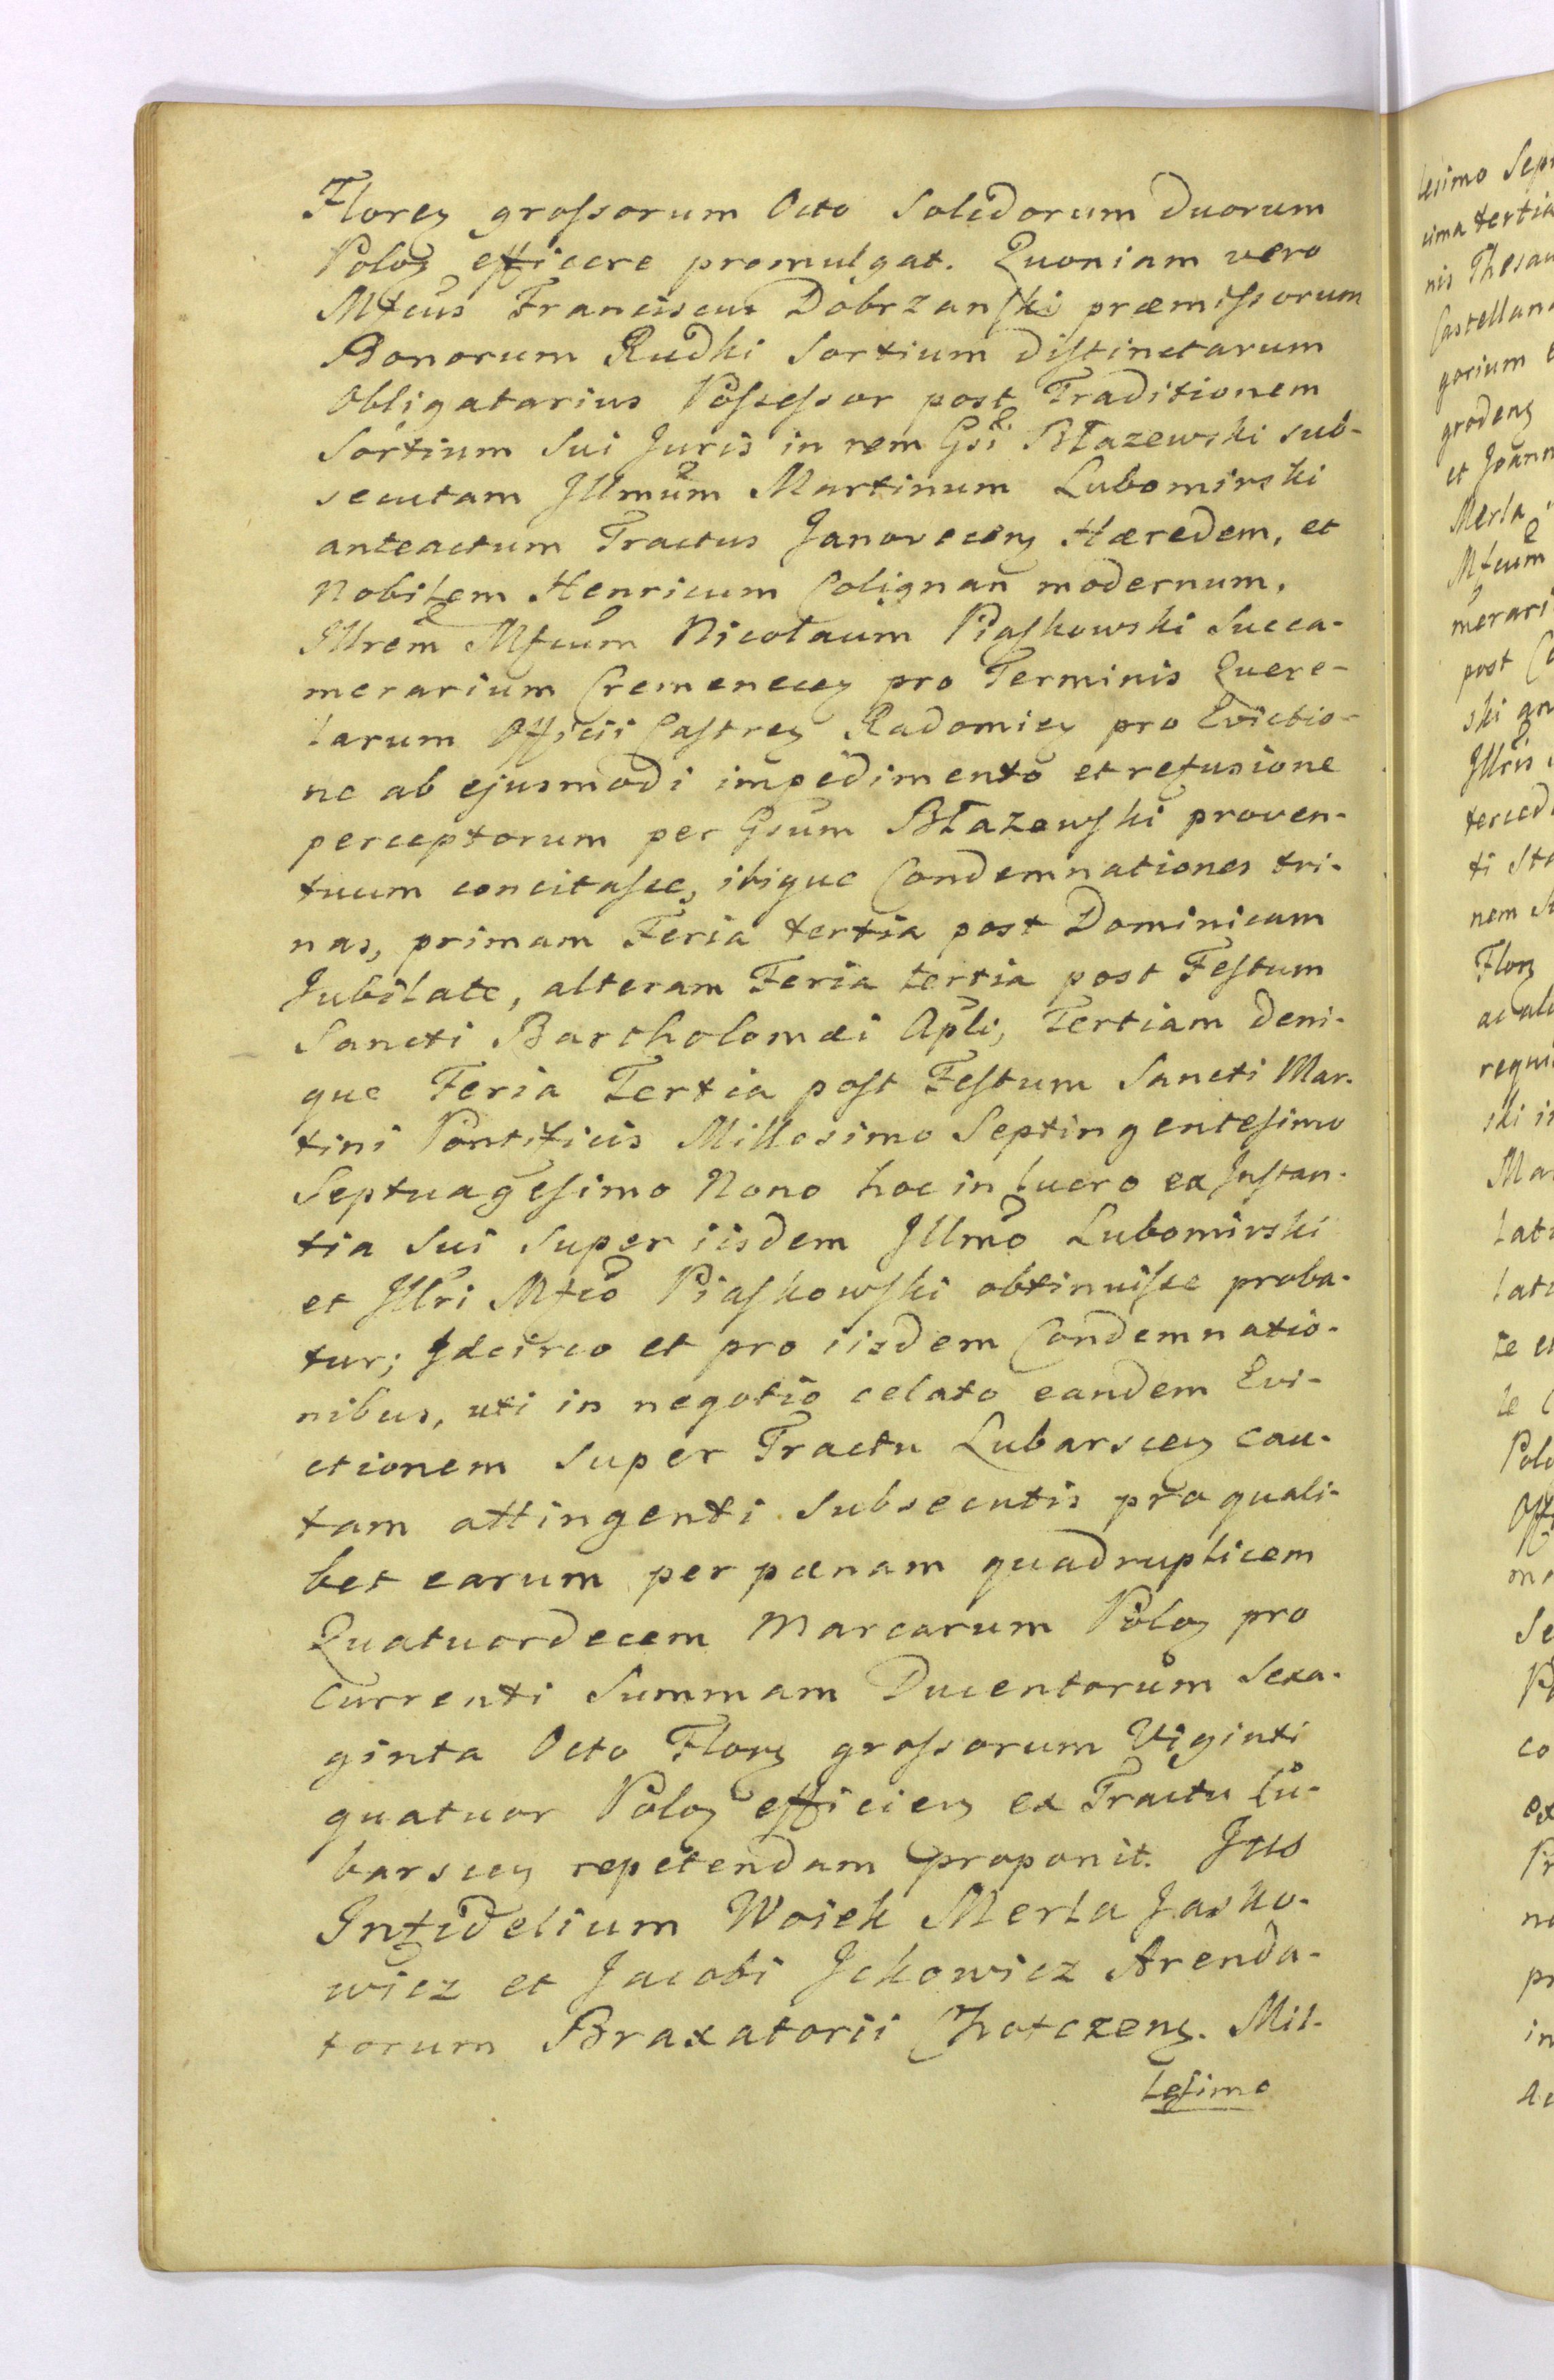 Floreŋ grossorum Octo Solidorum Duorum
Poloŋ efficere promulgat. Quoniam vero
Mfcus Franciscus Dobrzanski præmissorum
Bonorum Rudki Sortium distinctarum
Obligatarius Possessor post Traditionem
Sortium Sui Juris in rem Gsi Błazewski sub-
secutam Illmum Martinum Lubomirski
anteactum Tractus Janoveceŋ Hæredem, et
Nobilem Henricum Colignan modernum,
Illrem Mfcum Nicolaum Piaskowski Succa-
merarium Cremeneceŋ pro Terminis Quere-
larum Officii Castreŋ Radomieŋ pro Evictio-
ne ab ejusmodi impedimento et refusione
perceptorum per Gsum Błazewski proven-
tuum concitasse, ibique Condemnationes tri-
nas, primam Feria tertia post Dominicam
Jubilate, alteram Feria tertia post Festum
Sancti Bartholomæi Apli, Tertiam deni-
que Feria Tertia post Festum Sancti Mar-
tini Pontificis Millesimo Septingentesimo
Septuagesimo Nono hoc in lucro ex Instan-
tia Sui Super iisdem Illmo Lubomirski
et Illri Mfco Piaskowski obtinuisse proba-
tur; Idcirco et pro iisdem Condemnatio-
nibus, uti in negotio celato eandem Evi-
ctionem Super Tractu Lubarsceŋ cau-
tam attingenti Subsecutis pro quali-
bet earum per pænam quadruplicem
Quatuordecem Marcarum Poloŋ pro
Currenti Summam Ducentorum Sexa-
ginta Octo Floŋ grossorum Viginti
quatuor Poloŋ efficieŋ ex Tractu Lu-
barsceŋ repetendam proponit. Jus
Infidelium Wosek Merla Jasko-
wicz et Jacobi Jckowicz Arenda-
torum Braxatorii Chotczenŋ. Mil-
lesimo
lesimo
cima tertia
nis
Castellan
gorium
grodenŋ
et Joann
Merla
Mfcum
merari
post
ski
Illris
ti
nem
Floŋ
requi
ski
Ma
lat
lat
te
le
Pol
Se
co
ex
in